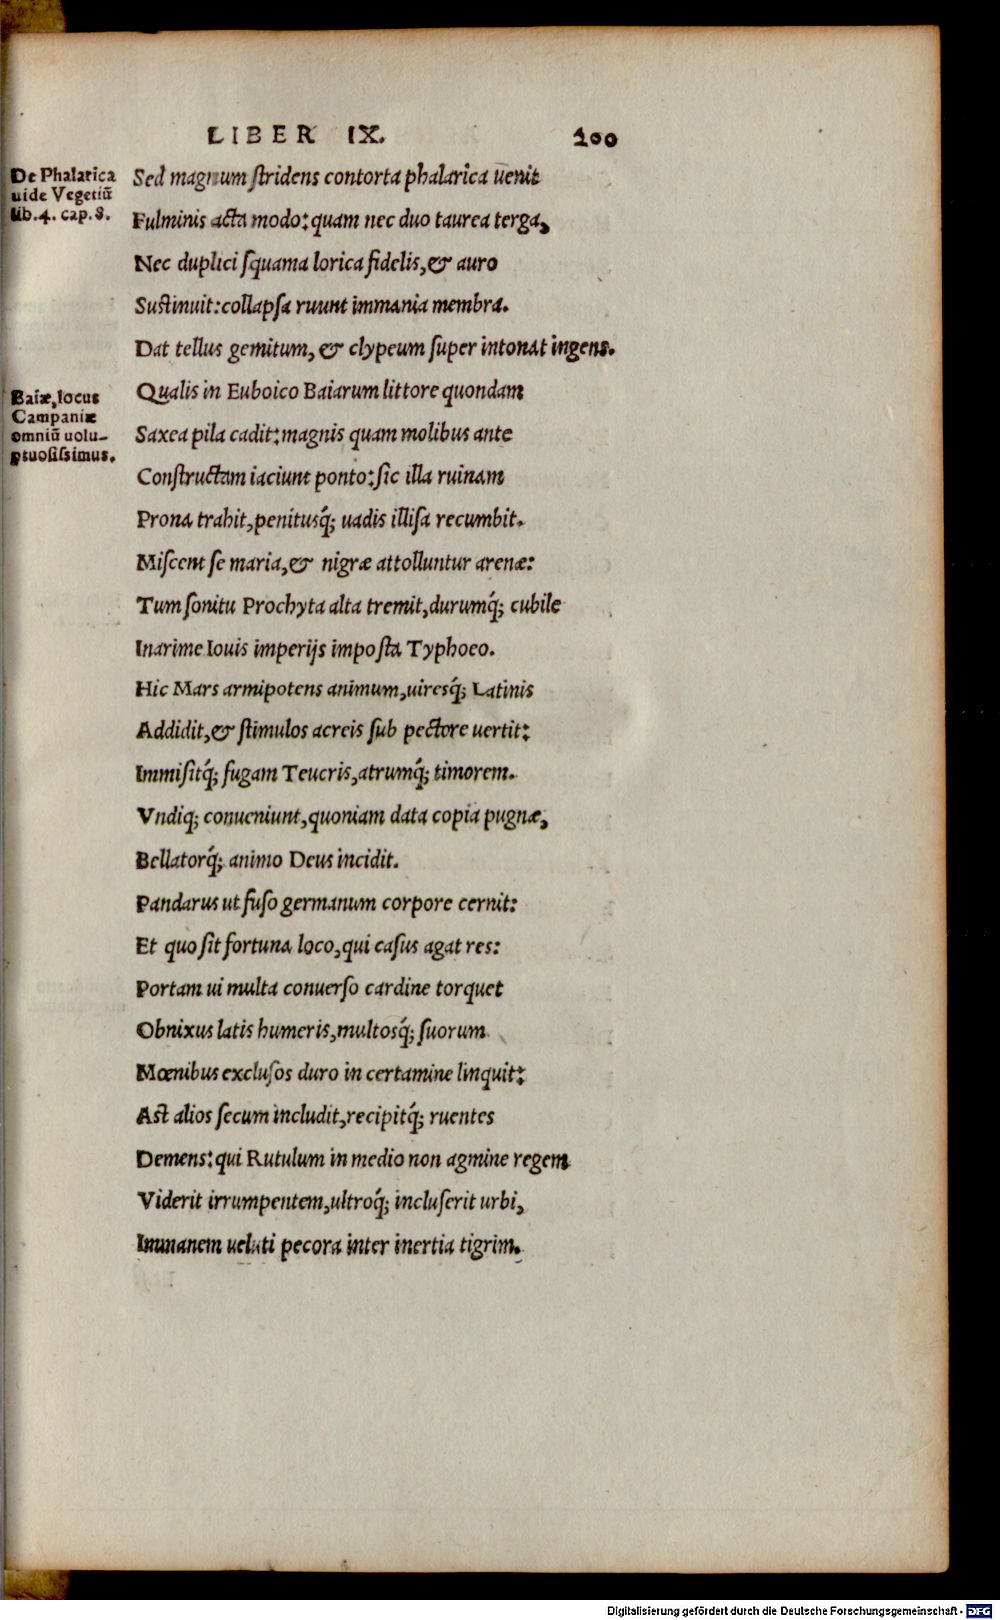 LIBER IX. 200
De Phalarica
uide Vegetiũ
lib.4. cap.8.
Sed magnum ſtridens contorta phalarica uenit
Fulminis acta modo: quam nec duo taurea terga,
Nec duplici ſquama lorica fidelis, & auro
Suſtinuit: collapſa ruunt immania membra.
Dat tellus gemitum, & clypeum ſuper intonat ingens.
Baiæ, locus
Campaniæ
omniũ uolu-
ptuoſiſsimus.
Qualis in Euboico Baiarum littore quondam
Saxea pila cadit: magnis quam molibus ante
Conſtructam iaciunt ponto: ſic illa ruinam
Prona trahit, penitusq́; uadis illiſa recumbit.
Miſcent ſe maria, & nigræ attolluntur arenæ:
Tum ſonitu Prochyta alta tremit, durumq́; cubile
Inarime Iouis imperijs impoſta Typhoeo.
Hic Mars armipotens animum, uiresq́; Latinis
Addidit, & ſtimulos acreis ſub pectore uertit:
Immiſitq́; fugam Teucris, atrumq́; timorem.
Vndiq; conueniunt, quoniam data copia pugnæ,
Bellatorq́; animo Deus incidit.
Pandarus ut fuſo germanum corpore cernit:
Et quo ſit fortuna loco, qui caſus agat res:
Portam ui multa conuerſo cardine torquet
Obnixus latis humeris, multosq́; ſuorum
Mœnibus excluſos duro in certamine linquit:
Aſt alios ſecum includit, recipitq́; ruentes
Demens: qui Rutulum in medio non agmine regem
Viderit irrumpentem, ultroq́; incluſerit urbi,
Immanem ueluti pecora inter inertia tigrim.
Digitalisierung gefördert durch die Deutsche Forschungsgemeinschaft - DFG